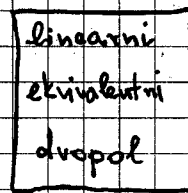 linearni
ekvivalentni
dvopol